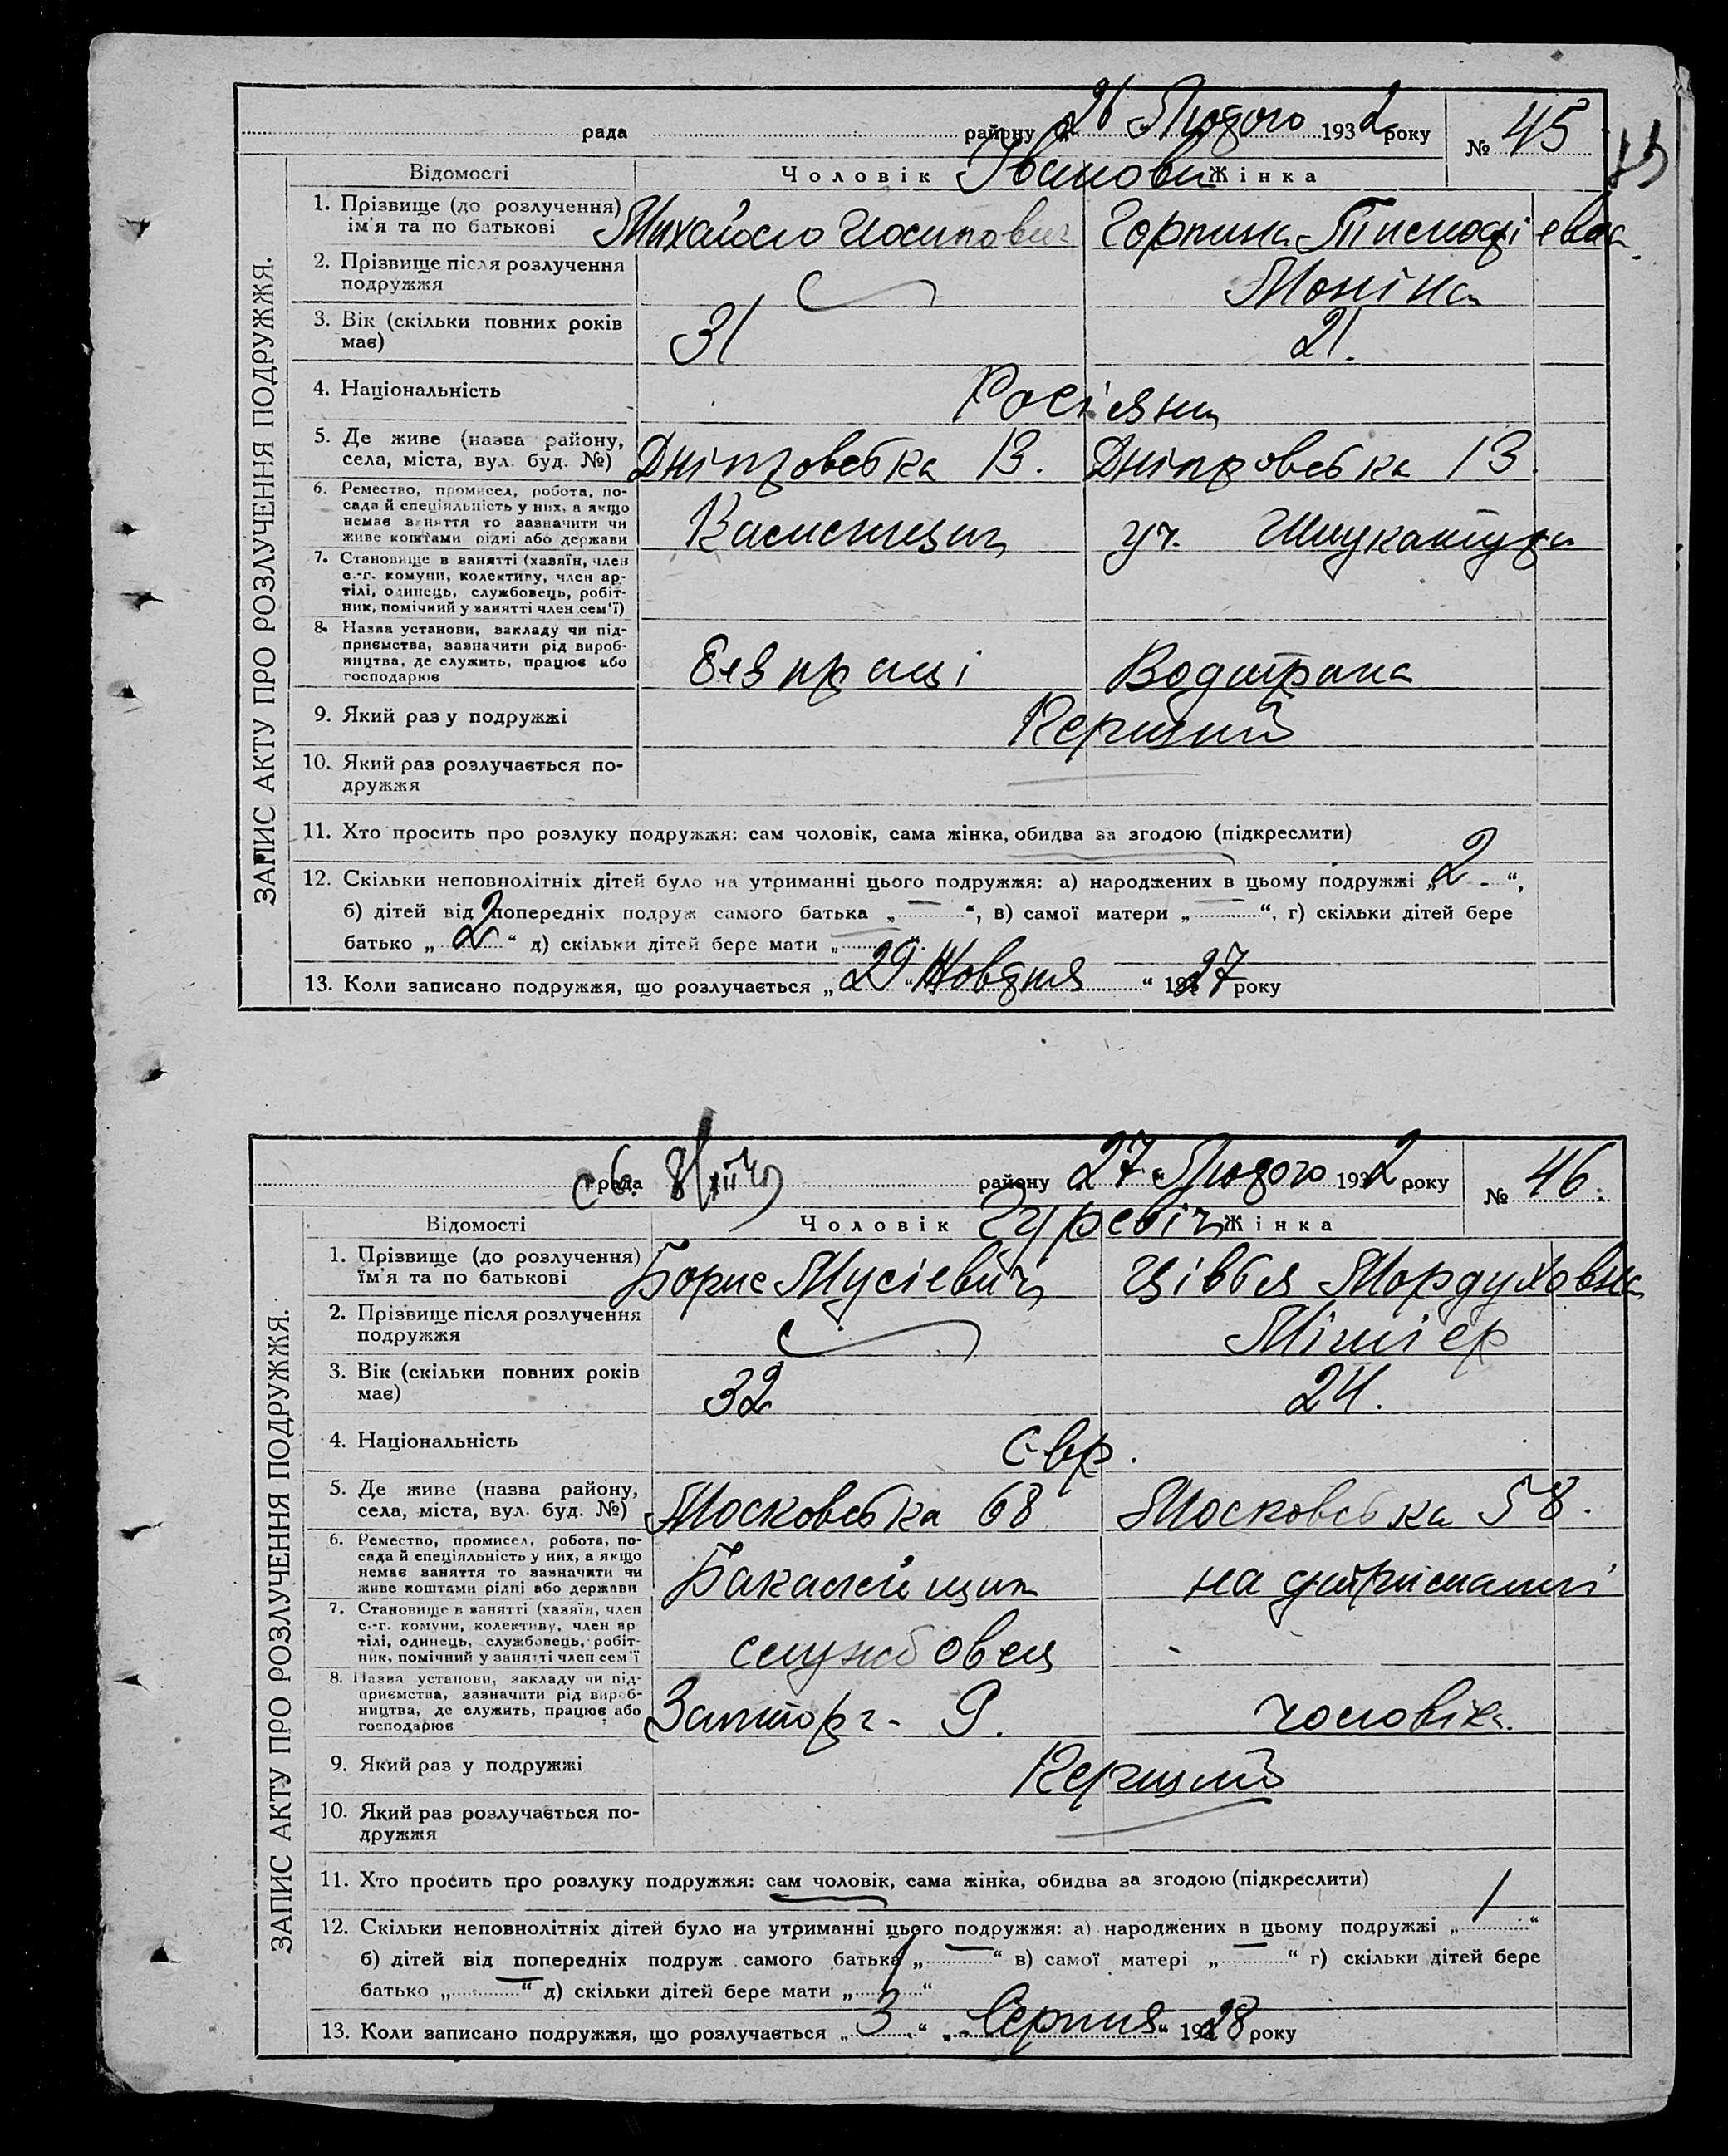 рада району „26 Лютого 1932 року № 45
Відомості Чоловік Іванови Жінка
ЗАПИС АКТУ ПРО РОЗЛУЧЕННЯ ПОДРУЖЖЯ.
1. Прізвище (до розлучення) Михайло Йосипович Горпина
ім'я та по батькові
2. Прізвище після розлучення Моніна
подружжя
3. Вік (скільки повних років 31 21.
має)
4. Національність Росіяни
5. Де живе (назва району, Дніпровська 13. Дніпровська 13.
села, міста, вул. буд. №)
6. Ремество, промисел, робота, по-
сада й спеціяльність у них, а якщо
немає заняття то зазначити чи
живе коштами рідні або держави уч. Штукатура
7. Становище в занятті (хазяїн, член
с.-г. комуни, колективу, член ар-
тілі, одинець, службовець, робіт-
ник, помічний у занятті член сем'ї)
8. Назва установи, закладу чи під-
приємства, зазначити рід вироб-
ництва, де служить, працює або Без праці
господарює
9. Який раз у подружжі Перший
10. Який раз розлучається по-
дружжя
11. Хто просить про розлуку подружжя: сам чоловік, сама жінка, обидва за згодою (підкреслити)
12. Скільки неповнолітніх дітей було на утриманні цього подружжя: а) народжених в цьому подружжі „2“,
б) дітей від попередніх подруж самого батька „—“, в) самої матери „—“, г) скільки дітей бере
батько „2“ д) скільки дітей бере мати „
13. Коли записано подружжя, що розлучається „29“ Жовтня “ 1927 року
рада району „27 Лютого 1932 року № 46.
Відомості Чоловік Гуревіч Жінка
ЗАПИС АКТУ ПРО РОЗЛУЧЕННЯ ПОДРУЖЖЯ.
1. Прізвище (до розлучення) Борис Мусієвич Ціввя Мордуховна
ім'я та по батькові
2. Прізвище після розлучення
подружжя
3. Вік (скільки повних років 32 24.
має)
4. Національність євр.
5. Де живе (назва району,
села, міста, вул. буд. №) Московська 68 Московська 58.
6. Ремество, промисел, робота, по-
сада й спеціяльність у них, а якщо
немає заняття то зазначити чи Бакалейщик на утриманні
живе коштами рідні або держави
7. Становище в занятті (хазяїн, член
с.-г. комуни, колективу, член ар
тілі, одинець, службовець, робіт- службовец -
ник, помічний у занятті член сем'ї
8. Назва установи, закладу чи під-
приємства, зазначити рід вироб-
ництва, де служить, працює або чоловіка.
господарює
9. Який раз у подружжі Перший
10. Який раз розлучається по-
дружжя
11. Хто просить про розлуку подружжя: сам чоловік, сама жінка, обидва за згодою (підкреслити)
12. Скільки неповнолітніх дітей було на утриманні цього подружжя: а) народжених в цьому подружжі „1“
б) дітей від попередніх подруж самого батька „—“ в) самої матері „—“ г) скільки дітей бере
батько „—“ д) скільки дітей бере мати „1“
13. Коли записано подружжя, що розлучається „3“ „Серпня“ 1928 року